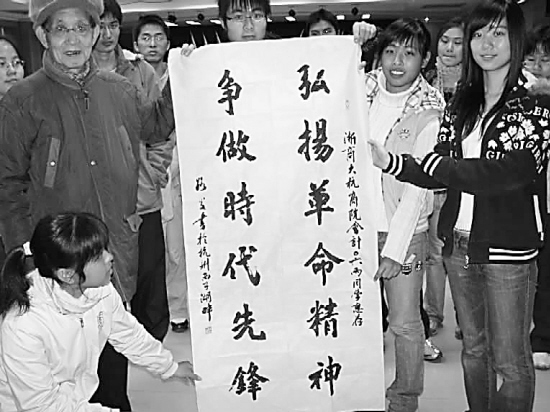 浙商大杭商院会計〇六丙同学惠存
弘揚革命精神
争做時代先鋒
書於杭州西子湖畔